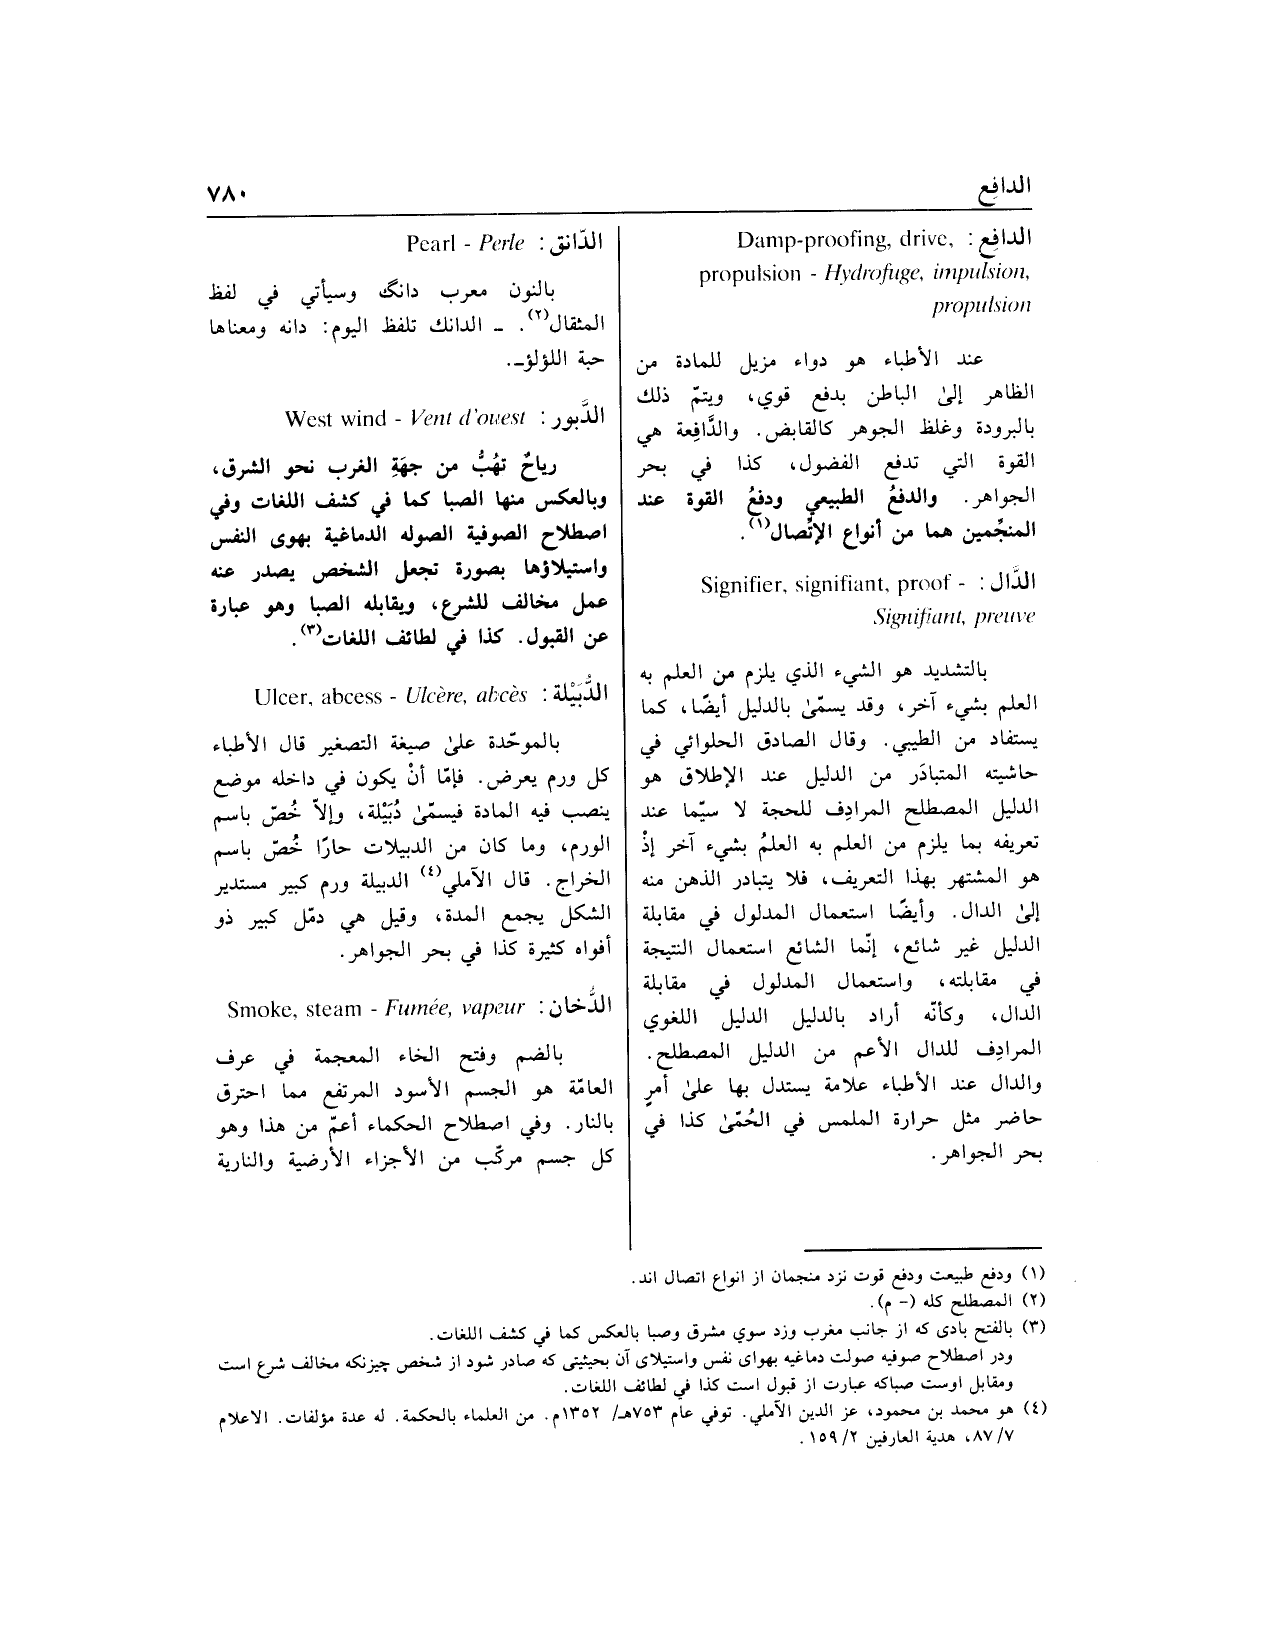 الدافع
٧٨٠
الدافع : Damp-proofing, drive,
propulsion - Hydrofuge, impulsion,
propulsion
عند الأطباء هو دواء مزيل للمادة من
الظاهر إلىٰ الباطن بدفع قوي، ويتمّ ذلك
بالبرودة وغلظ الجوهر كالقابض. والدَّافِعة هي
القوة التي تدفع الفضول، كذا في بحر
الجواهر. والدفعُ الطبيعي ودفعُ القوة عند
المنجِّمين هما من أنواع الإتِّصال(١).
الدَّال : Signifier, signifiant, proof -
Signifiant, preuve
بالتشديد هو الشيء الذي يلزم من العلم به
العلم بشيء آخر، وقد يسمّىٰ بالدليل أيضًا، كما
يستفاد من الطيبي. وقال الصادق الحلوائي في
حاشيته المتبادَر من الدليل عند الإطلاق هو
الدليل المصطلح المرادِف للحجة لا سيّما عند
تعريفه بما يلزم من العلم به العلمُ بشيء آخر إذْ
هو المشتهر بهذا التعريف، فلا يتبادر الذهن منه
إلىٰ الدال. وأيضًا استعمال المدلول في مقابلة
الدليل غير شائع، إنّما الشائع استعمال النتيجة
في مقابلته، واستعمال المدلول في مقابلة
الدال، وكأنّه أراد بالدليل الدليل اللغوي
المرادِف للدال الأعم من الدليل المصطلح.
والدال عند الأطباء علامة يستدل بها علىٰ أمرٍ
حاضر مثل حرارة الملمس في الحُمّىٰ كذا في
بحر الجواهر.
الدّانق : Pearl - Perle
بالنون معرب دانگ وسيأتي في لفظ
المثقال(٢). ـ الدانك تلفظ اليوم: دانه ومعناها
حبة اللؤلؤـ.
الدَّبور : West wind - Vent d'ouest
رياحٌ تهُبُّ من جهَةِ الغرب نحو الشرق،
وبالعكس منها الصبا كما في كشف اللغات وفي
اصطلاح الصوفية الصوله الدماغية بهوى النفس
واستيلاؤها بصورة تجعل الشخص يصدر عنه
عمل مخالف للشرع، ويقابله الصبا وهو عبارة
عن القبول. كذا في لطائف اللغات(٣).
الدُّبَيْلة : Ulcer, abcess - Ulcère, abcès
بالموحّدة علىٰ صيغة التصغير قال الأطباء
كل ورم يعرض. فإمّا أنْ يكون في داخله موضع
ينصب فيه المادة فيسمّىٰ دُبَيْلة، وإلاّ خُصّ باسم
الورم، وما كان من الدبيلات حارًا خُصّ باسم
الخراج. قال الآملي(٤) الدبيلة ورم كبير مستدير
الشكل يجمع المدة، وقيل هي دمّل كبير ذو
أفواه كثيرة كذا في بحر الجواهر.
الدُّخان : Smoke, steam - Fumée, vapeur
بالضم وفتح الخاء المعجمة في عرف
العامّة هو الجسم الأسود المرتفع مما احترق
بالنار. وفي اصطلاح الحكماء أعمّ من هذا وهو
كل جسم مركّب من الأجزاء الأرضية والنارية
(١) ودفع طبيعت ودفع قوت نزد منجمان از انواع اتصال اند.
(٢) المصطلح كله (- م).
(٣) بالفتح بادى كه از جانب مغرب وزد سوي مشرق وصبا بالعكس كما في كشف اللغات.
ودر اصطلاح صوفيه صولت دماغيه بهواى نفس واستيلاى آن بحيثيتى كه صادر شود از شخص چيزنكه مخالف شرع است
ومقابل اوست صباكه عبارت از قبول است كذا في لطائف اللغات.
(٤) هو محمد بن محمود، عز الدين الآملي. توفي عام ٧٥٣هـ/ ١٣٥٢م. من العلماء بالحكمة. له عدة مؤلفات. الاعلام
٨٧/٧، هدية العارفين ١٥٩/٢.